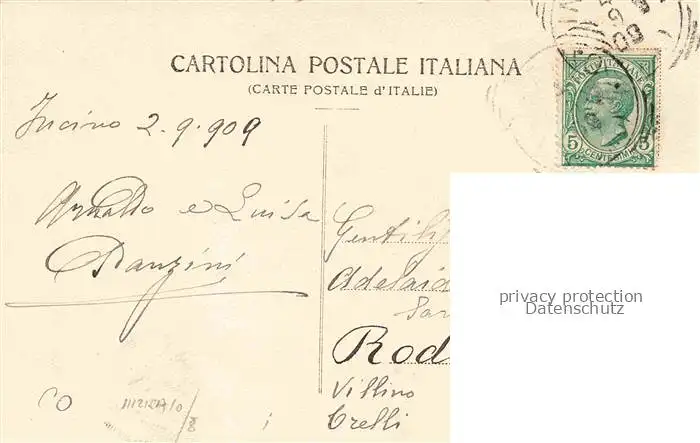 CARTOLINA POSTALE ITALIANA
(CARTE POSTALE d'ITALIE)
POSTE ITALIANE
5 5
CENTESIMI
Incino 2.9.909
Arnaldo e Luisa
Ranzini
Gentili
Adelaid
Rod
Villino
Crelli
privacy protection
Datenschutz